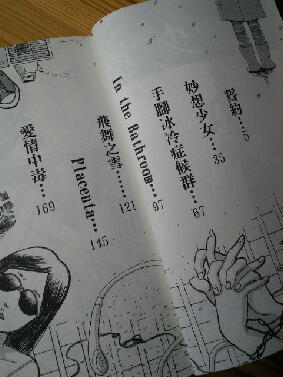 誓約…5
妙想少女…35
手腳冰冷症候群…67
In the Bathroom…97
飛舞之雪……121
Placenta…145
愛情中毒…169